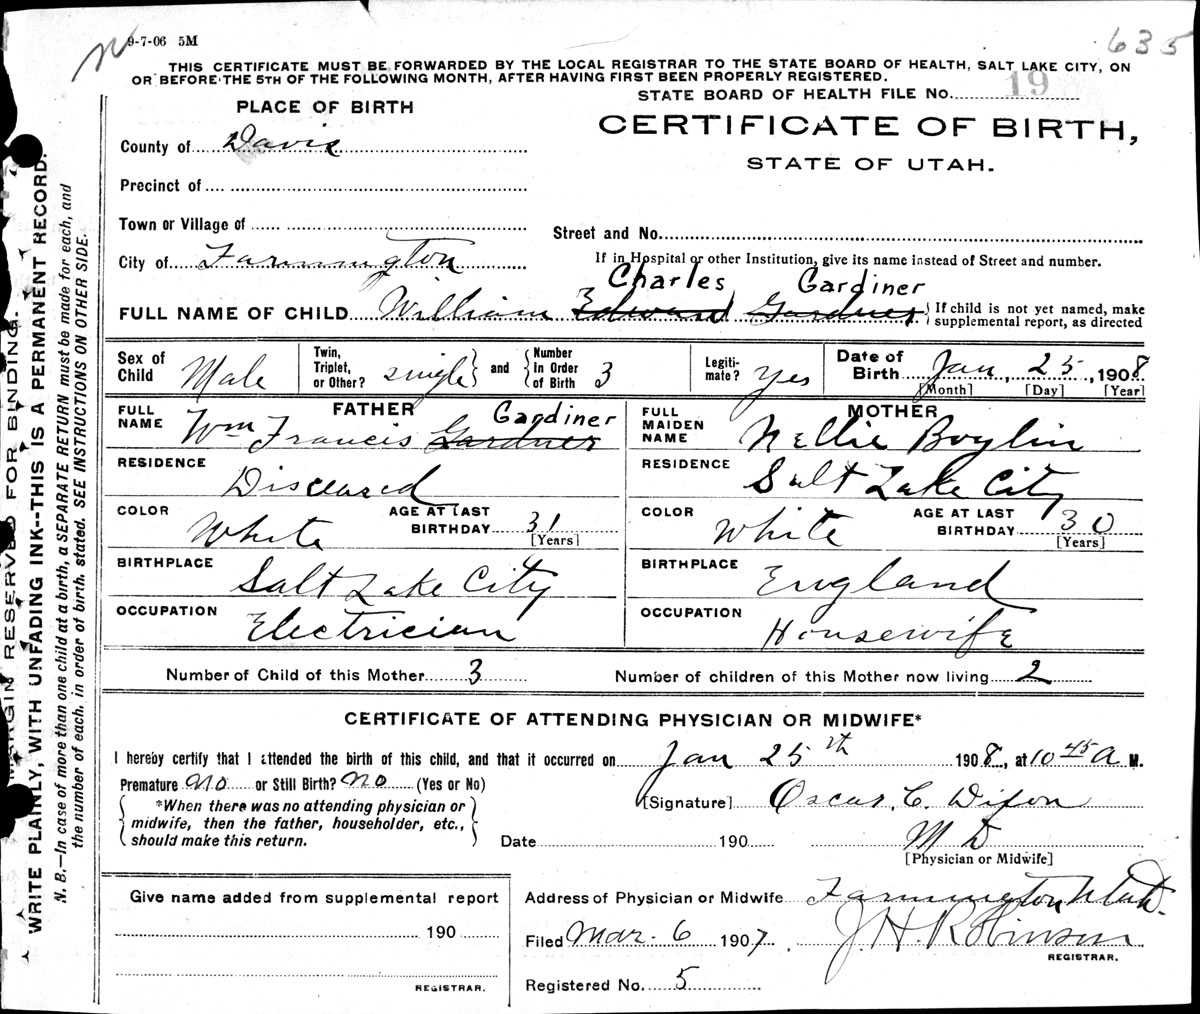 9-7-06 5M
635
THIS CERTIFICATE MUST BE FORWARDED BY THE LOCAL REGISTRAR TO THE STATE BOARD OF HEALTH, SALT LAKE CITY, ON
OR BEFORE THE 5TH OF THE FOLLOWING MONTH, AFTER HAVING FIRST BEEN PROPERLY REGISTERED.
STATE BOARD OF HEALTH FILE No. 19
PLACE OF BIRTH
CERTIFICATE OF BIRTH,
STATE OF UTAH.
County of Davis
Precinct of
Town or Village of
Street and No.
City of Farmington
If in Hospital or other Institution, give its name instead of Street and number.
Charles Gardiner
FULL NAME OF CHILD William Edward Gardner { If child is not yet named, make supplemental report, as directed
Sex of Child Male
Twin, Triplet, or Other? single } and { Number In Order of Birth 3
Legitimate? Yes
Date of Birth Jan, 25, 1908
[Month] [Day] [Year]
FATHER
FULL NAME Wm Francis Gardner Gardiner
RESIDENCE Disceased
COLOR White AGE AT LAST BIRTHDAY 31 [Years]
BIRTHPLACE Salt Lake City
OCCUPATION Electrician
MOTHER
FULL MAIDEN NAME Nellie Boylin
RESIDENCE Salt Lake City
COLOR White AGE AT LAST BIRTHDAY 30 [Years]
BIRTHPLACE England
OCCUPATION Housewife
Number of Child of this Mother 3 Number of children of this Mother now living 2
CERTIFICATE OF ATTENDING PHYSICIAN OR MIDWIFE*
I hereby certify that I attended the birth of this child, and that it occurred on Jan 25th 1908, at 10 45 A M.
Premature No or Still Birth? No (Yes or No)
{ *When there was no attending physician or midwife, then the father, householder, etc., should make this return. }
[Signature] Oscar C. Dixon
Date 190 M D
[Physician or Midwife]
Give name added from supplemental report
190
REGISTRAR.
Address of Physician or Midwife Farmington Utah.
Filed Mar. 6 1907. J. H. Robinson
REGISTRAR.
Registered No. 5
MARGIN RESERVED FOR BINDING.
WRITE PLAINLY, WITH UNFADING INK--THIS IS A PERMANENT RECORD.
N. B.—In case of more than one child at a birth, a SEPARATE RETURN must be made for each, and
the number of each, in order of birth, stated. SEE INSTRUCTIONS ON OTHER SIDE.